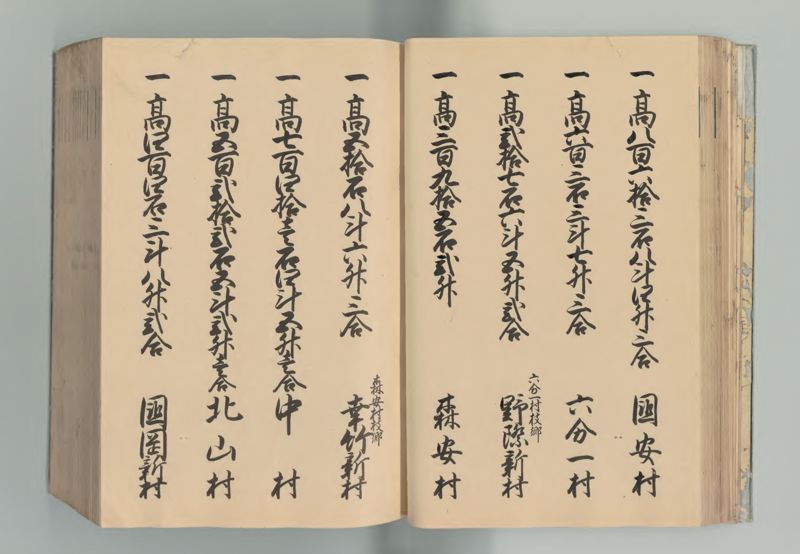 一髙八百六拾三石八斗四升三合 國安村
一髙六百三石三斗七升三合 六分一村
六分一村枝郷
一髙弐拾七石六斗五升弐合 野際新村
一髙三百九拾五石弐升 森安村
森安村枝郷
一髙五拾石八斗六升三合 幸竹新村
一髙七百四拾壱石四斗五升壱合 中村
一髙五百弐拾弐石五斗弐升壱合 北山村
一髙四百四石三斗八升弐合 國岡新村